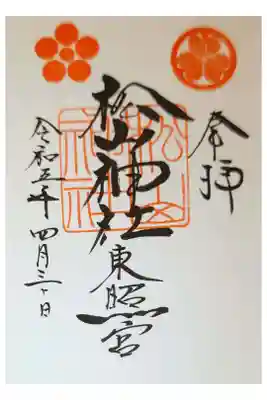 奉拝
松山神社
東照宮
令和五年 四月三十日